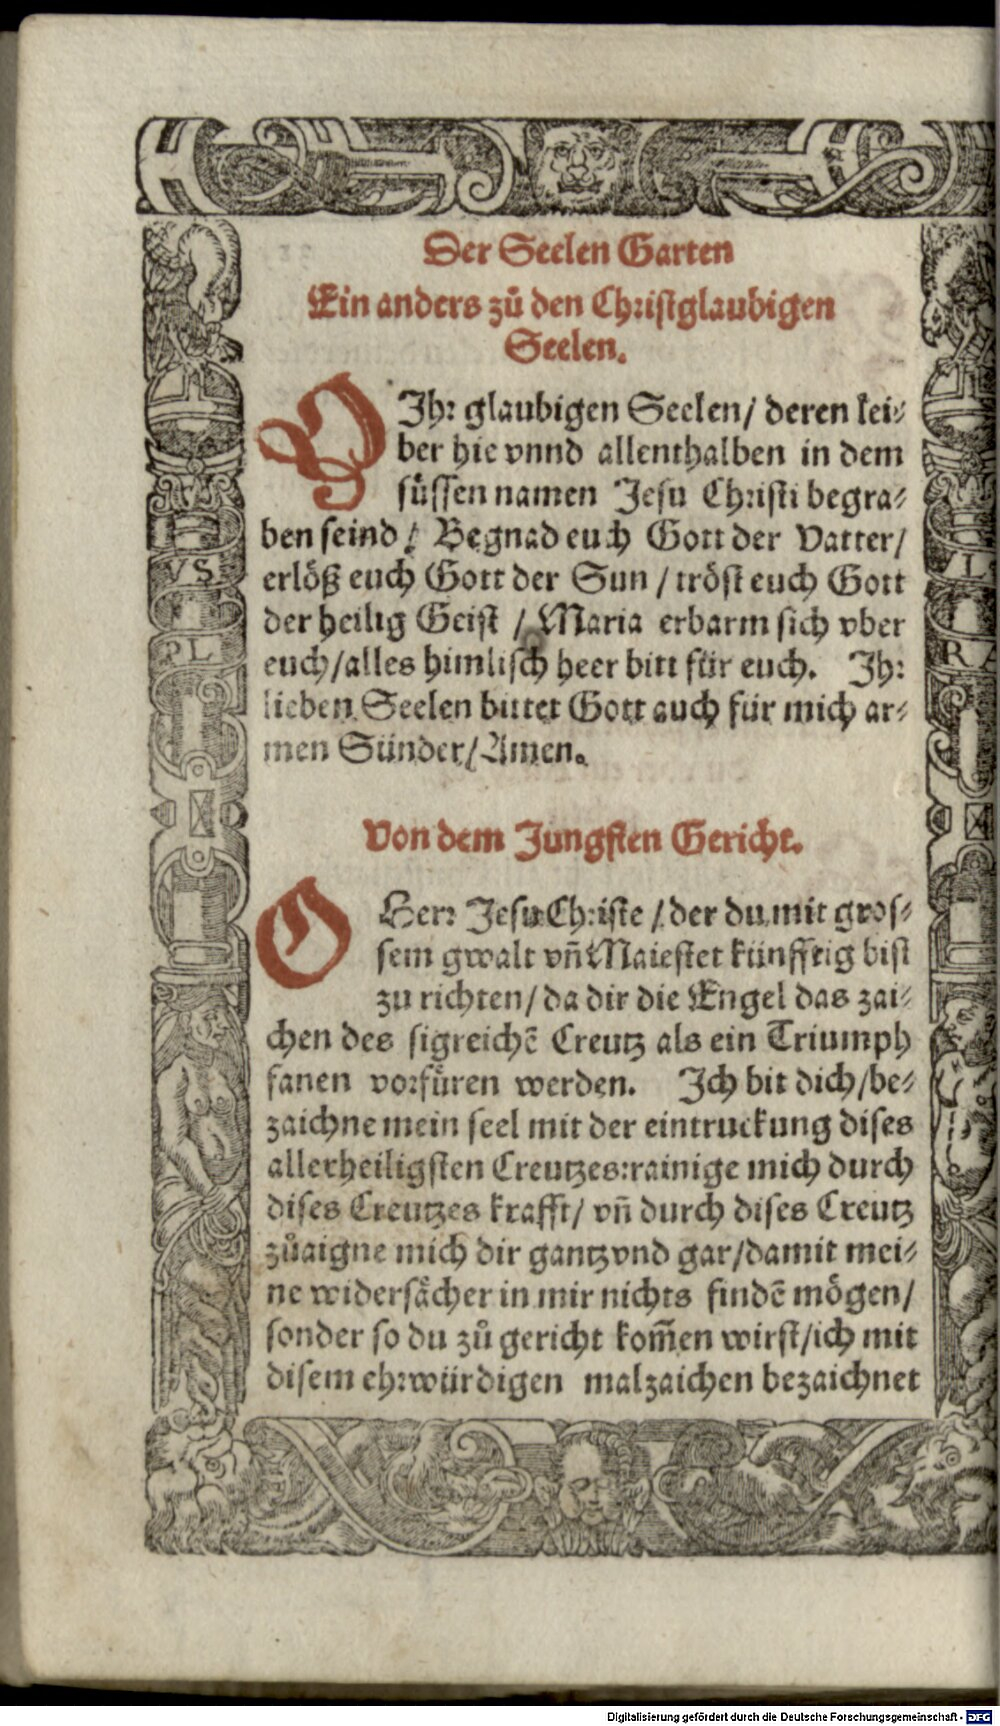 Der Seelen Garten
Ein anders zů den Christglaubigen
Seelen.
O Ihr glaubigen Seelen/ deren lei⸗
ber hie vnnd allenthalben in dem
süssen namen Jesu Christi begra⸗
ben seind / Begnad euch Gott der Vatter/
erlöß euch Gott der Sun / tröst euch Gott
der heilig Geist / Maria erbarm sich vber
euch/alles himlisch heer bitt für euch. Ihr
lieben Seelen bittet Gott auch für mich ar⸗
men Sünder/Amen.
Von dem Jungsten Gericht.
O Herr Jesu Christe / der du mit gros⸗
sem gwalt vñ Maiestet künfftig bist
zu richten/ da dir die Engel das zai⸗
chen des sigreichẽ Creutz als ein Triumph
fanen vorfüren werden. Ich bit dich/be⸗
zaichne mein seel mit der eintruckung dises
allerheiligsten Creutzes:rainige mich durch
dises Creutzes krafft/ vñ durch dises Creutz
zůaigne mich dir gantz vnd gar/damit mei⸗
ne widersächer in mir nichts findẽ mögen/
sonder so du zů gericht kom̃en wirst/ich mit
disem ehrwürdigen malzaichen bezaichnet
VS
PL
VL
RA
Digitalisierung gefördert durch die Deutsche Forschungsgemeinschaft - DFG